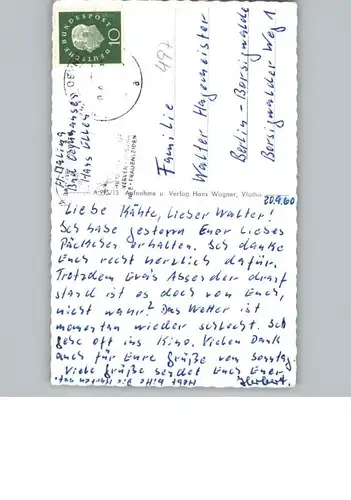 DEUTSCHE BUNDESPOST
10
497
Familie
Walter Hagemeister
Berlin-Borsigwalde
Borsigwalder Weg 1
Bad Oeynhausen
Aufnahme u. Verlag Hans Wagner, Vlotho
20.9.60
Liebe Käthe, Lieber Walter!
Ich habe gestern Euer liebes
Päckchen erhalten. Ich danke
Euch recht herzlich dafür.
Trotzdem Evas Absender drauf
stand ist es doch von Euch,
nicht wahr? Das Wetter ist
momentan wieder schlecht. Ich
gehe oft ins Kino. Vielen Dank
auch für Eure Grüße von Sonntag.
Viele Grüße sendet Euch Euer
Herbert.